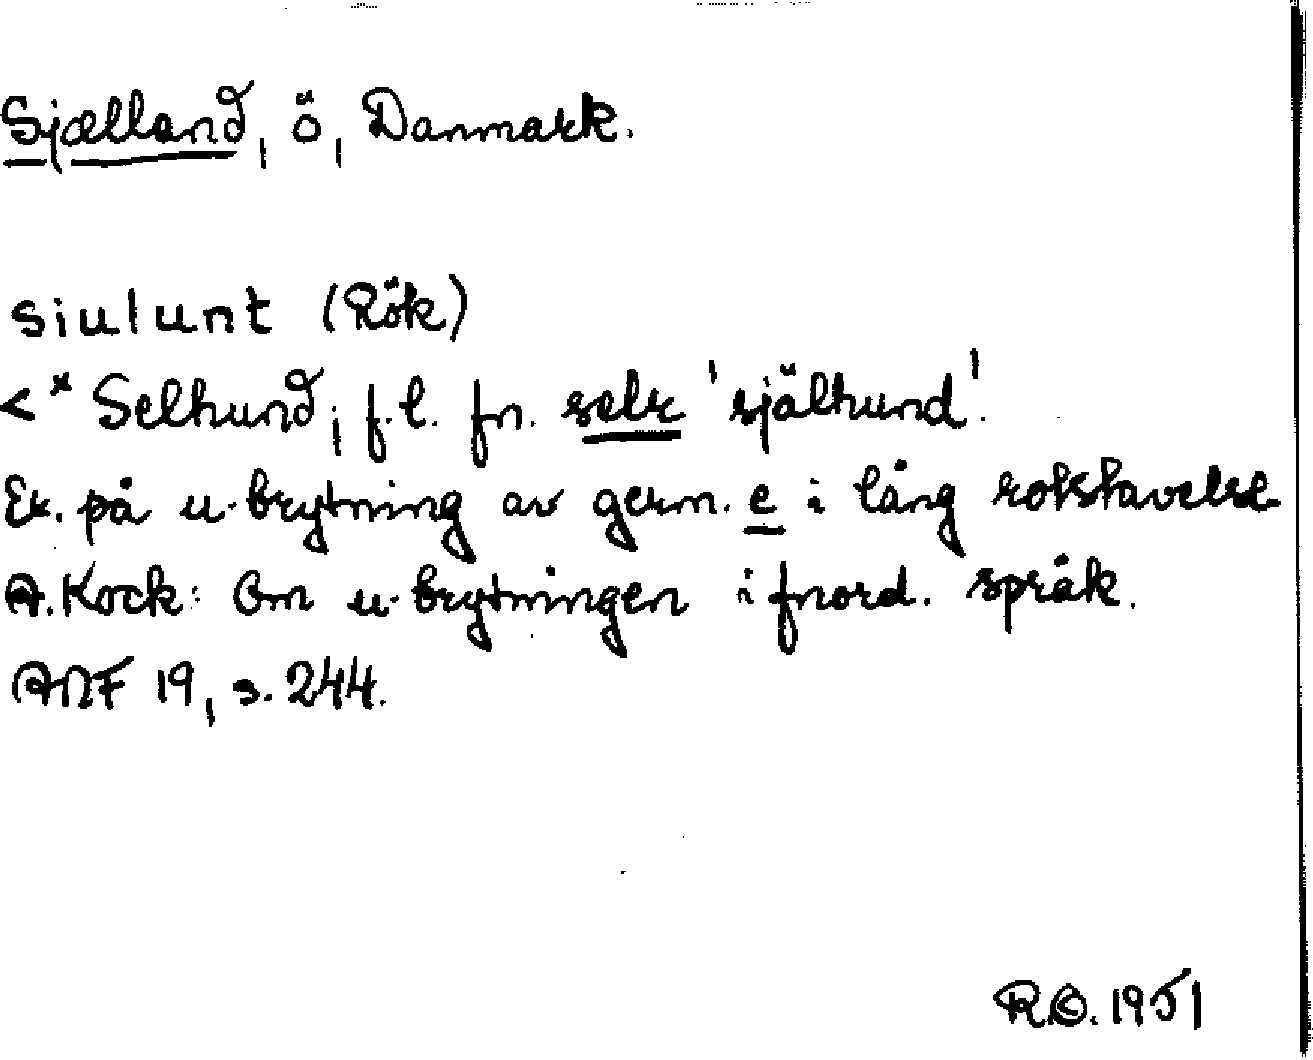 Sjælland, ö, Danmark.
siulunt (Rök)
< * Selhund; f.l. fn. selr 'själhund'.
Ex. på u-brytning av germ. e i lång rotstavelse
A. Kock: Om u-brytningen i fnord. språk.
ANF 19, s. 244.
R.E. 1951